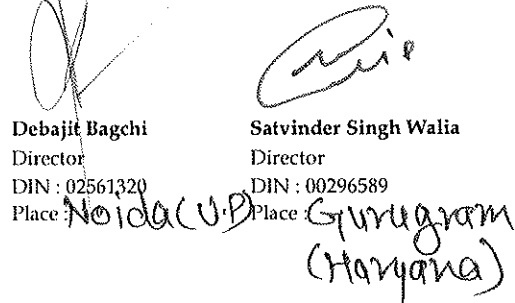 Debajit Bagchi
Director
DIN : 02561320
Place : Noida (U.P)
Satvinder Singh Walia
Director
DIN : 00296589
Place : Gurugram
(Haryana)